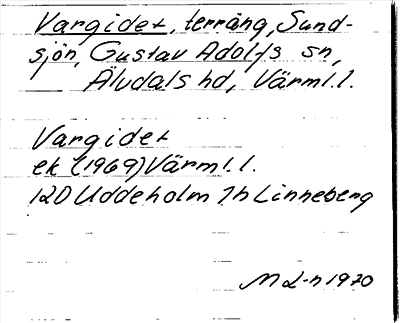 Vargidet, terräng, Sund-
sjön, Gustav Adolfs sn,
Älvdals hd, Värml.l.
Vargidet
ek (1969) Värml.l.
12D Uddeholm 7h Linneberg
M L-n 1970